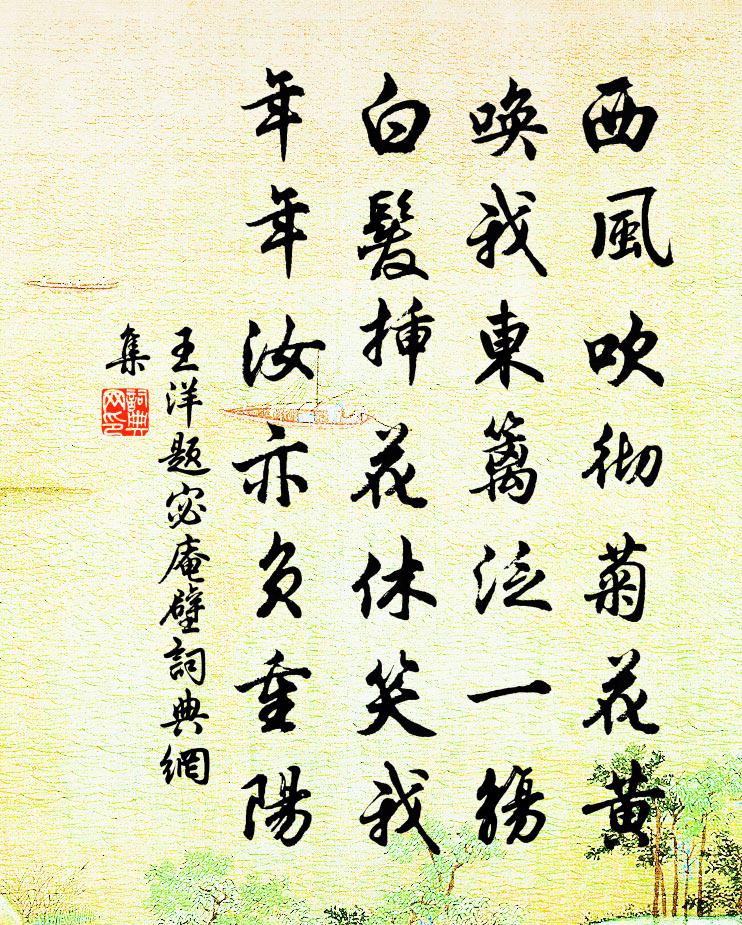 西風吹彻菊花黃
喚我東籬泛一觴
白髮挿花休笑我
年年汝亦負重陽
王洋題密庵壁詞典網
集
詞典
网印